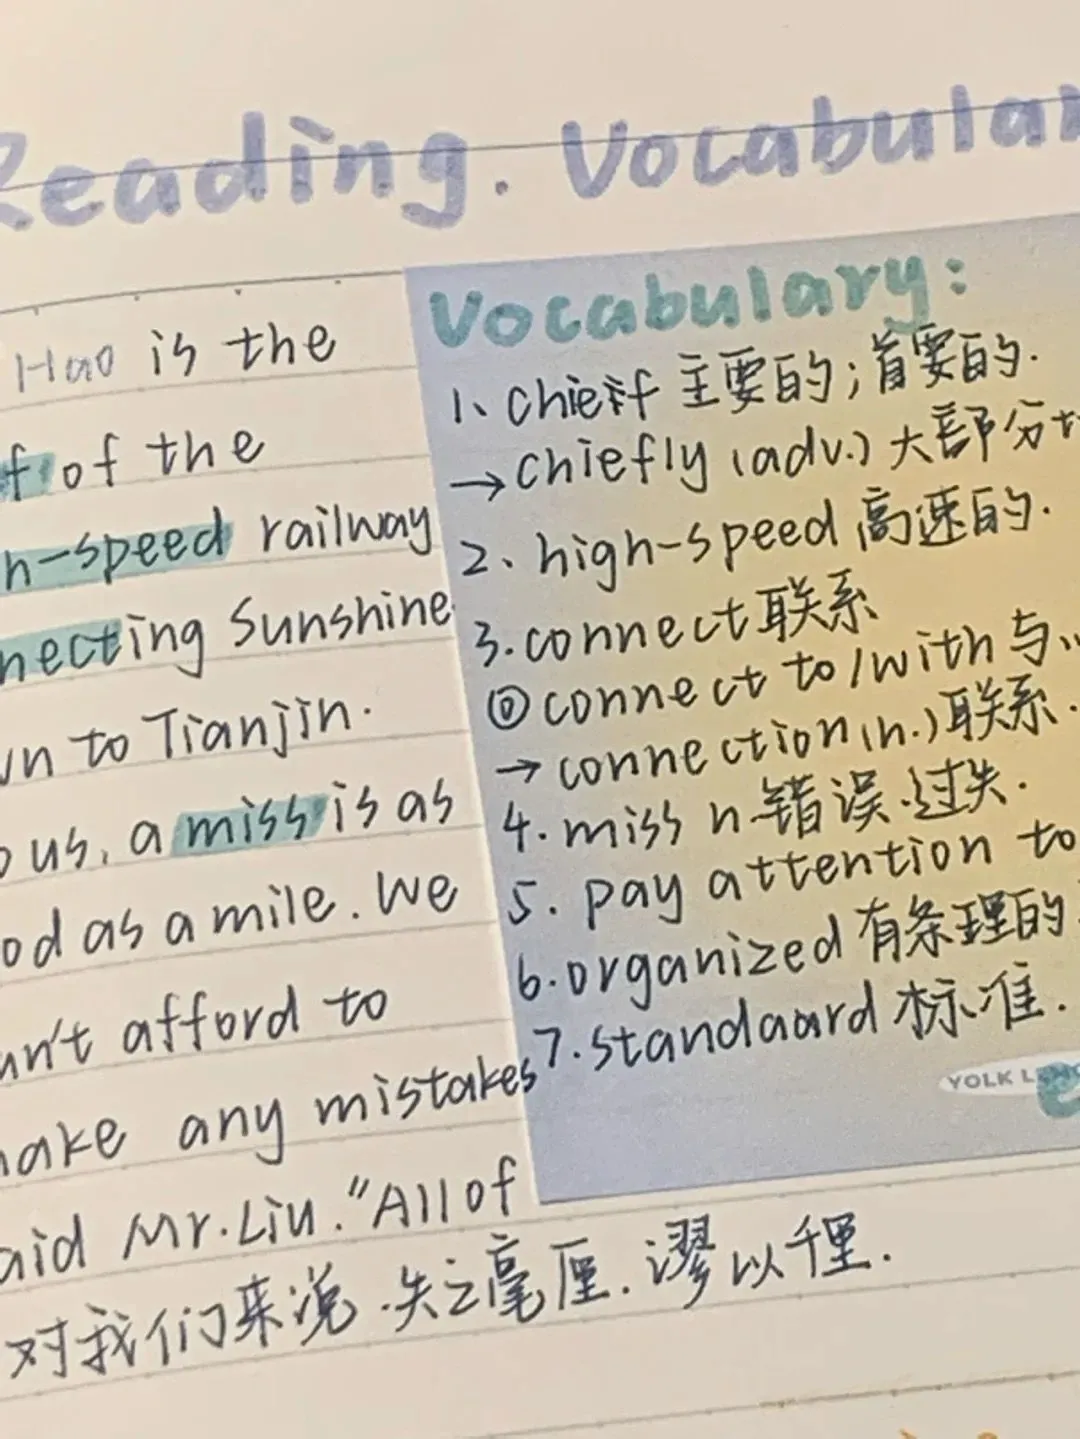 Reading. Vocabular
Hao is the
f of the
h-speed railway
necting Sunshine
wn to Tianjin.
o us, a miss is as
od as a mile. We
an't afford to
make any mistakes
aid Mr. Liu. "All of
对我们来说.失之毫厘.谬以千里.
Vocabulary:
1、chief 主要的;首要的.
→chiefly (adv.) 大部分地
2、high-speed 高速的.
3.connect 联系
①connect to/with 与..
→connection (n.) 联系.
4.miss n.错误.过失.
5. pay attention to
6.organized 有条理的
7.standaard 标准.
YOLK L